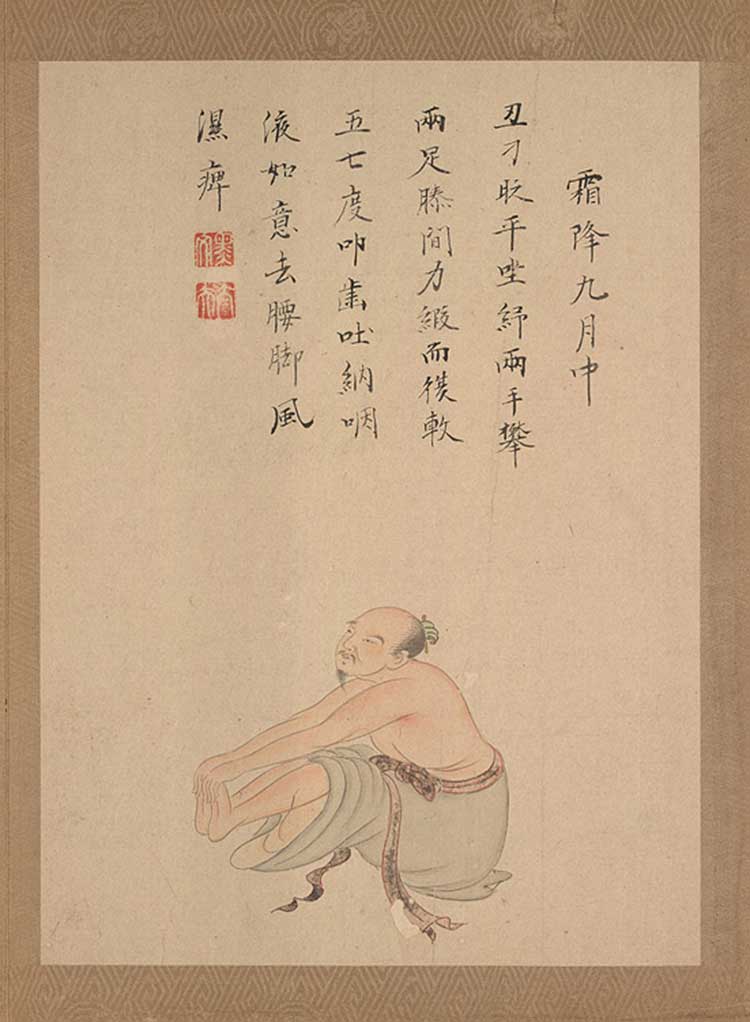 霜降九月中
丑刁平坐紓兩手攀
兩足膝間力緞而復軟
五七度叩齒吐納咽
液如意去腰脚風
濕痺